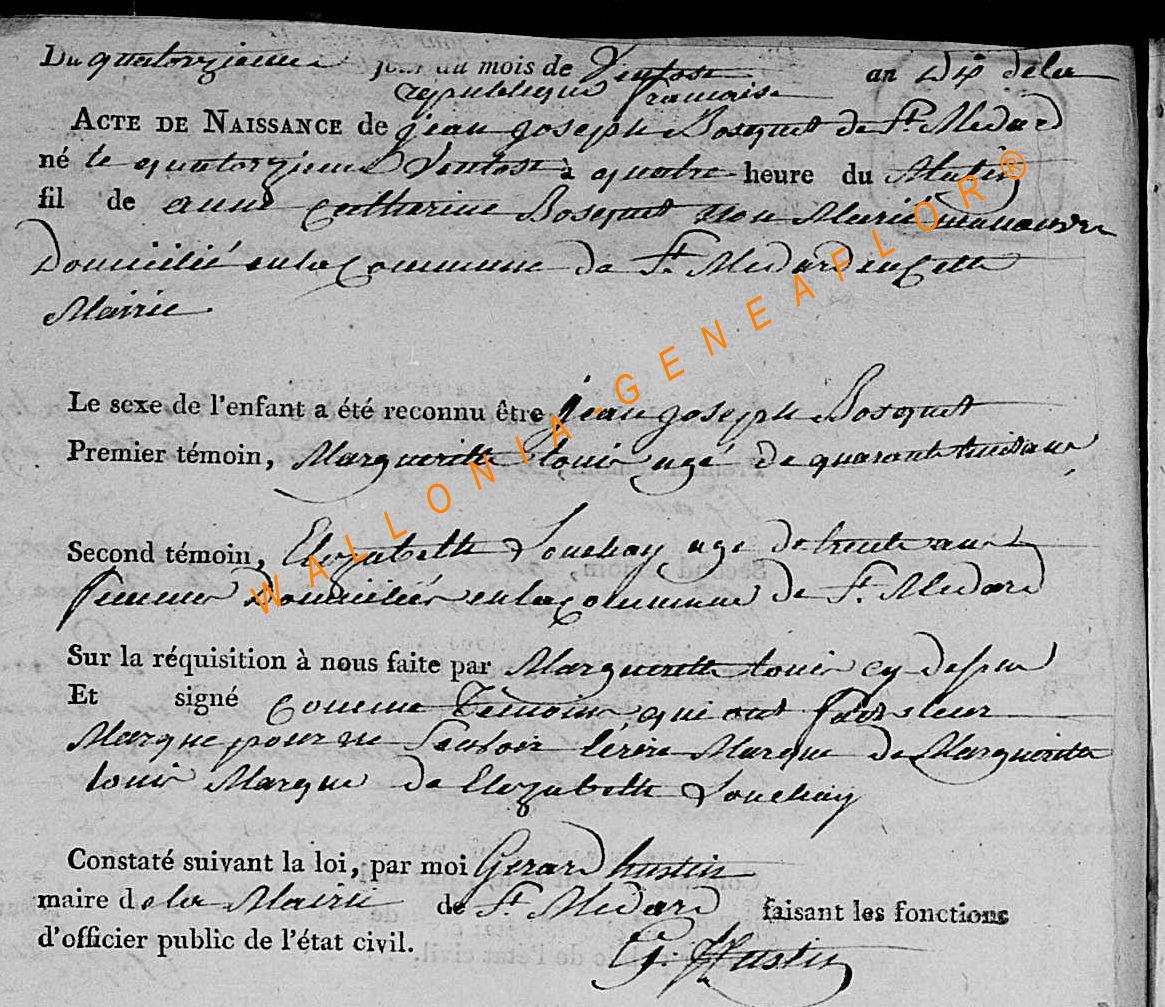 Du quatorzieme jour du mois de Ventose an dix de la
republique francaise
ACTE DE NAISSANCE de jean joseph Bosquet de St. Medard
né le quatorzieme Ventose à quatre heure du Matin
fil de anne Catherine Bosquet non Marié manouvre
Domicilié en la Commune de St. Medard en Cette
Mairie.
Le sexe de l'enfant a été reconnu être jean joseph Bosquet
Premier témoin, Margueritte louis agé de quarante huit ans
Second témoin, Elizabette Souchay age de trente ans
femmes Domiciliés en la Commune de St. Medard
Sur la réquisition à nous faite par Margueritte louis cy dessus
Et signé comme Temoins qui ont fait leur
Marque pour ne Scavoir Ecrire Marque de Margueritte
louis Marque de Elizabette Souchay
Constaté suivant la loi, par moi Gerard hustin
maire de la Mairie de St. Medard faisant les fonctions
d'officier public de l'état civil.
G. Hustin
WALLONIA-GENEAFLOR®